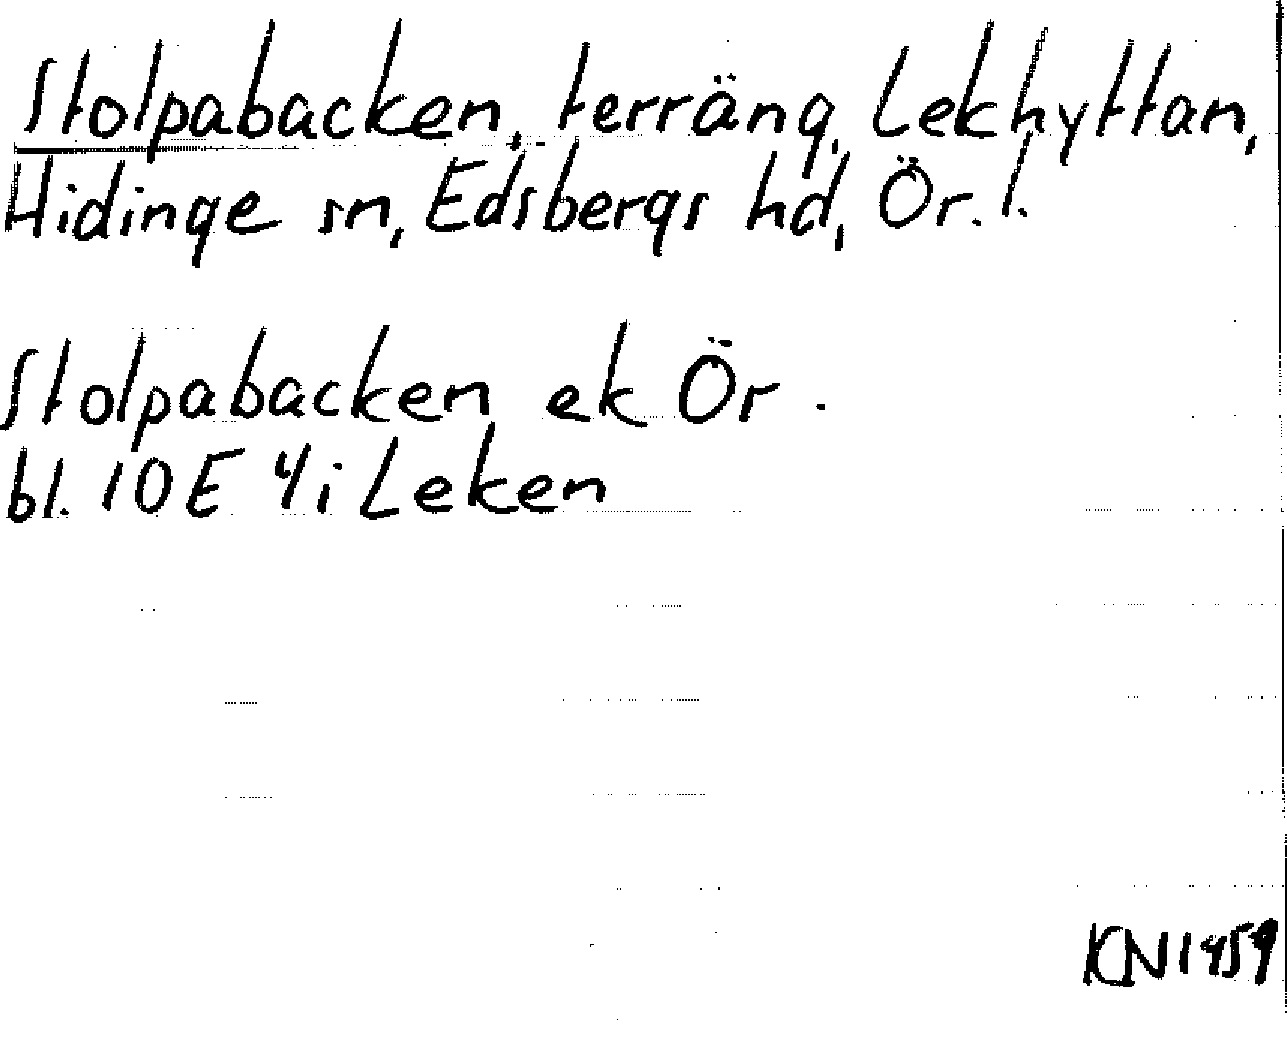 Stolpabacken, terräng, Lekhyttan,
Hidinge sn, Edsbergs hd, Ör. l.
Stolpabacken ek Ör.
bl. 10E 4i Leken
KN1959